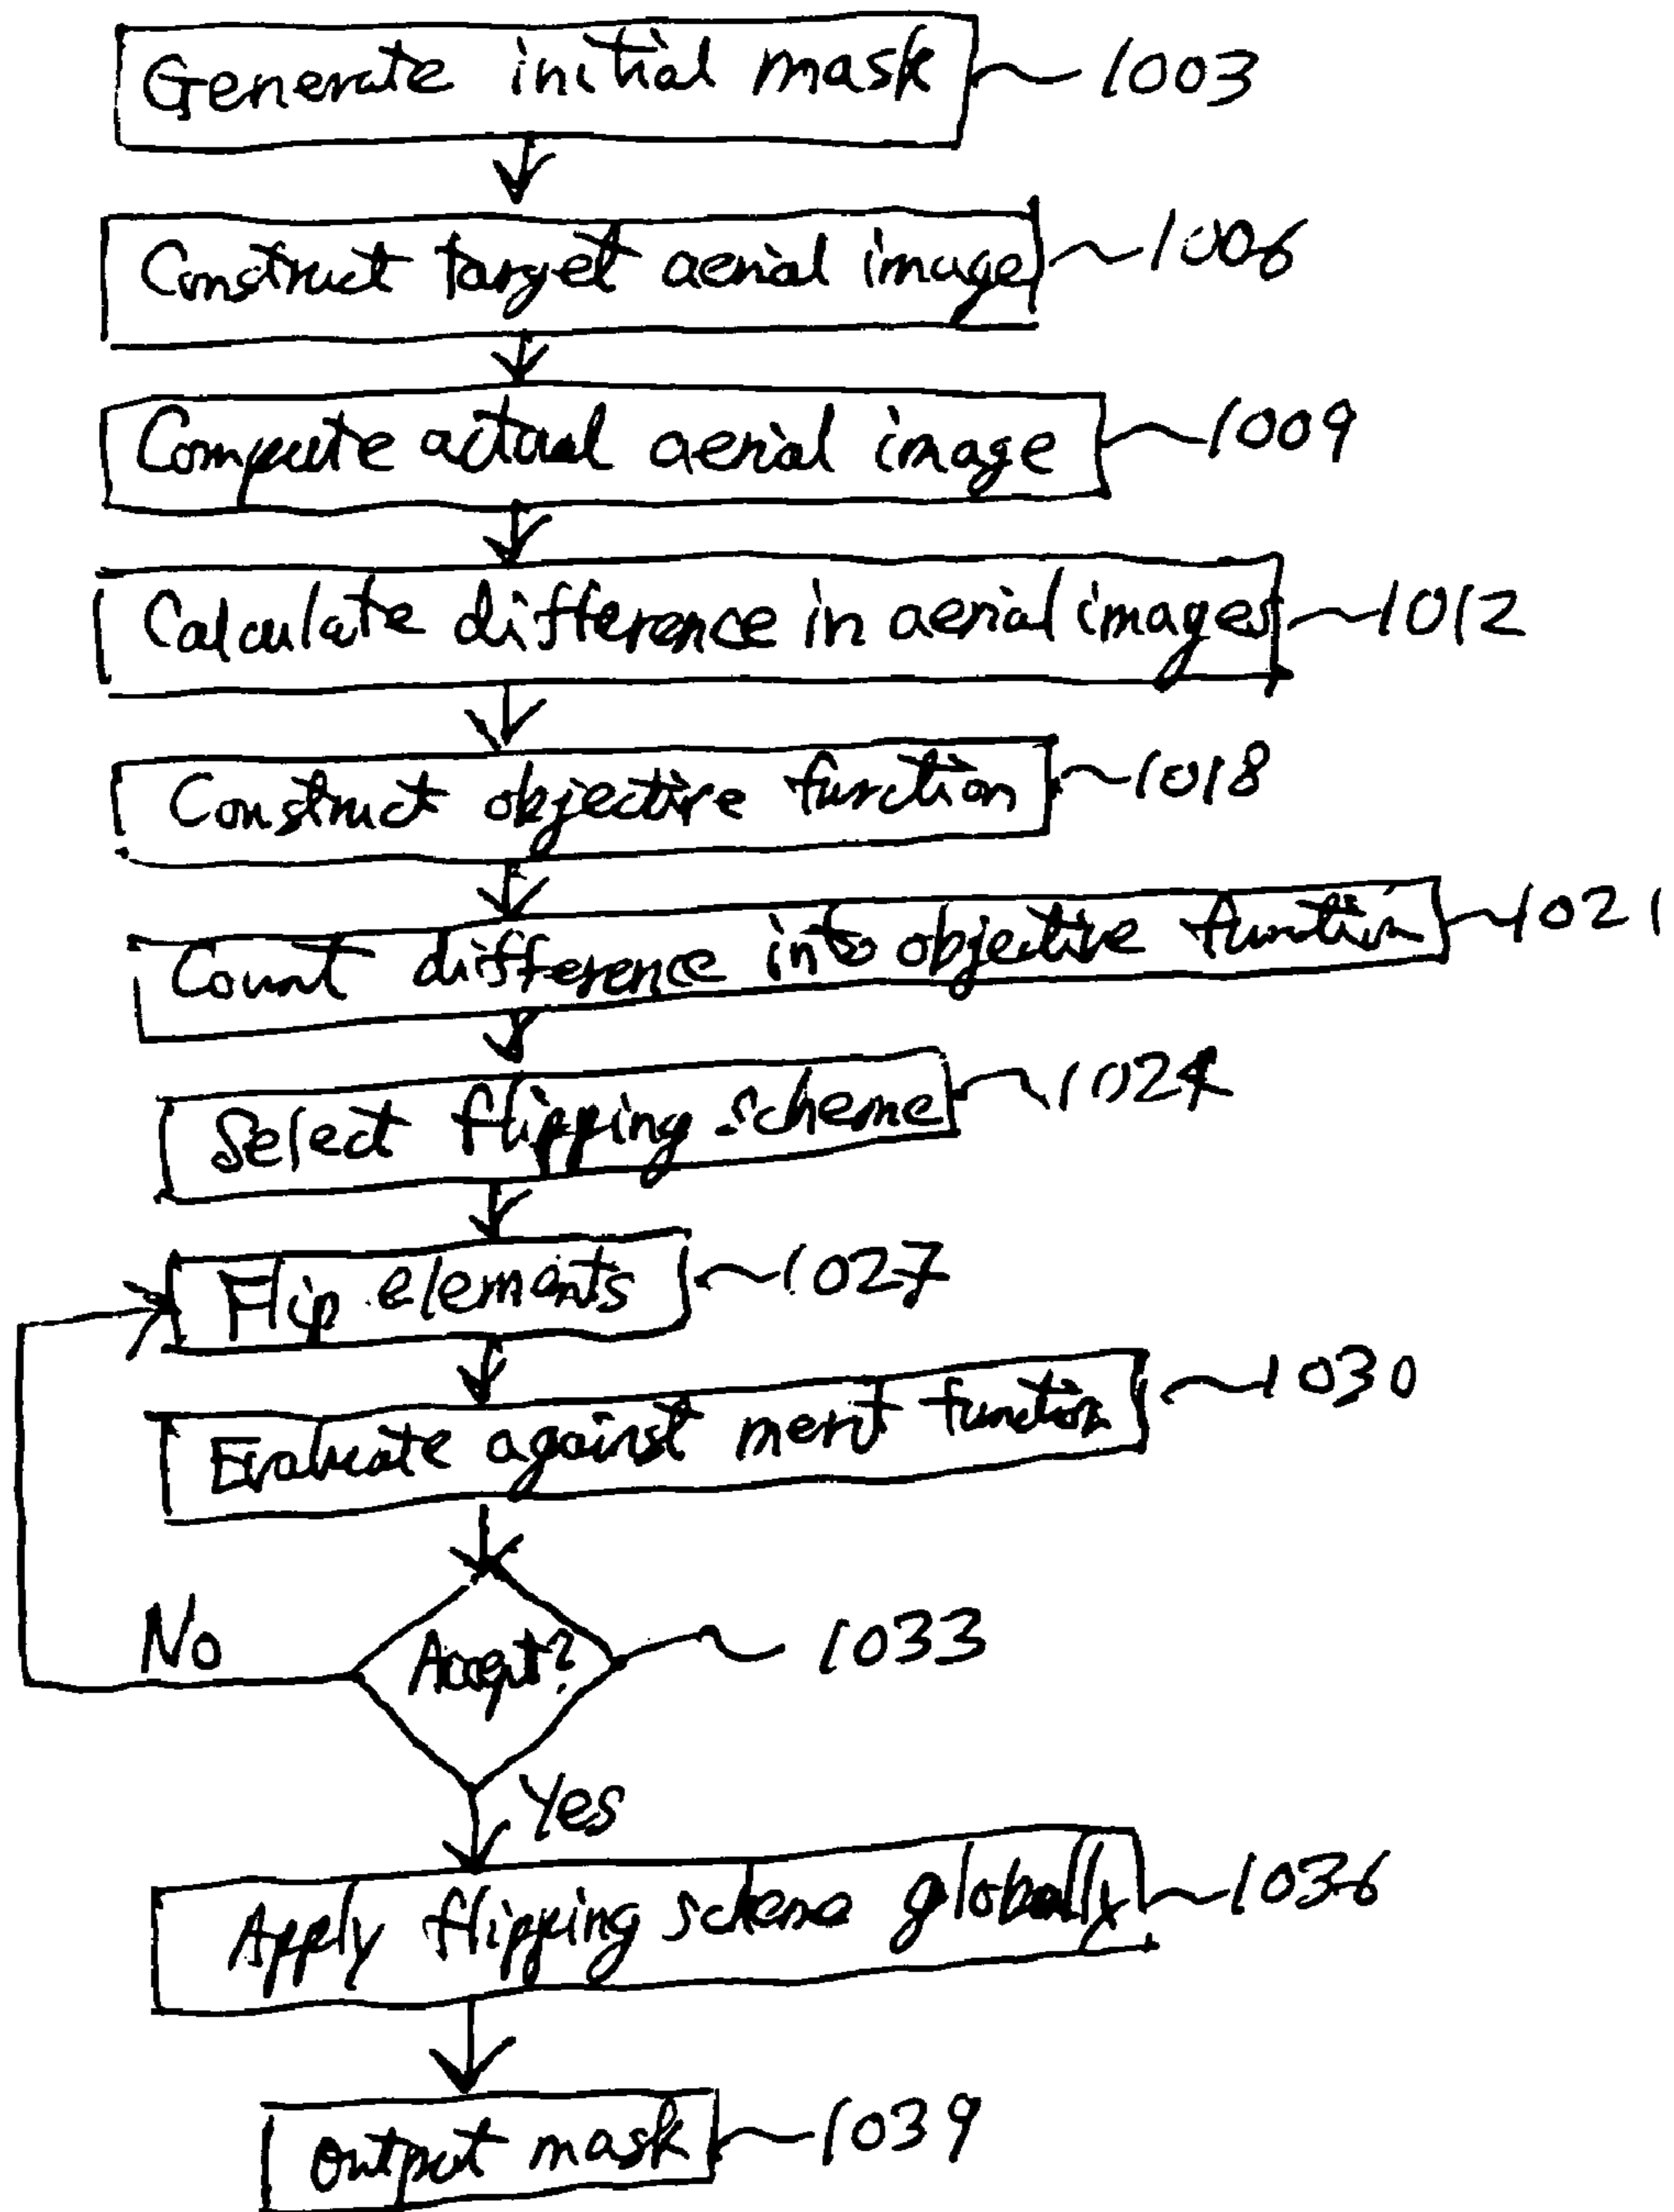 Generate initial mask 1003
Construct target aerial image 1006
Compute actual aerial image 1009
Calculate difference in aerial images 1012
Construct objective function 1018
Count difference into objective function 1021
Select flipping scheme 1024
Flip elements 1027
Evaluate against merit function 1030
No Accept? 1033
Yes
Apply flipping scheme globally 1036
Output mask 1039